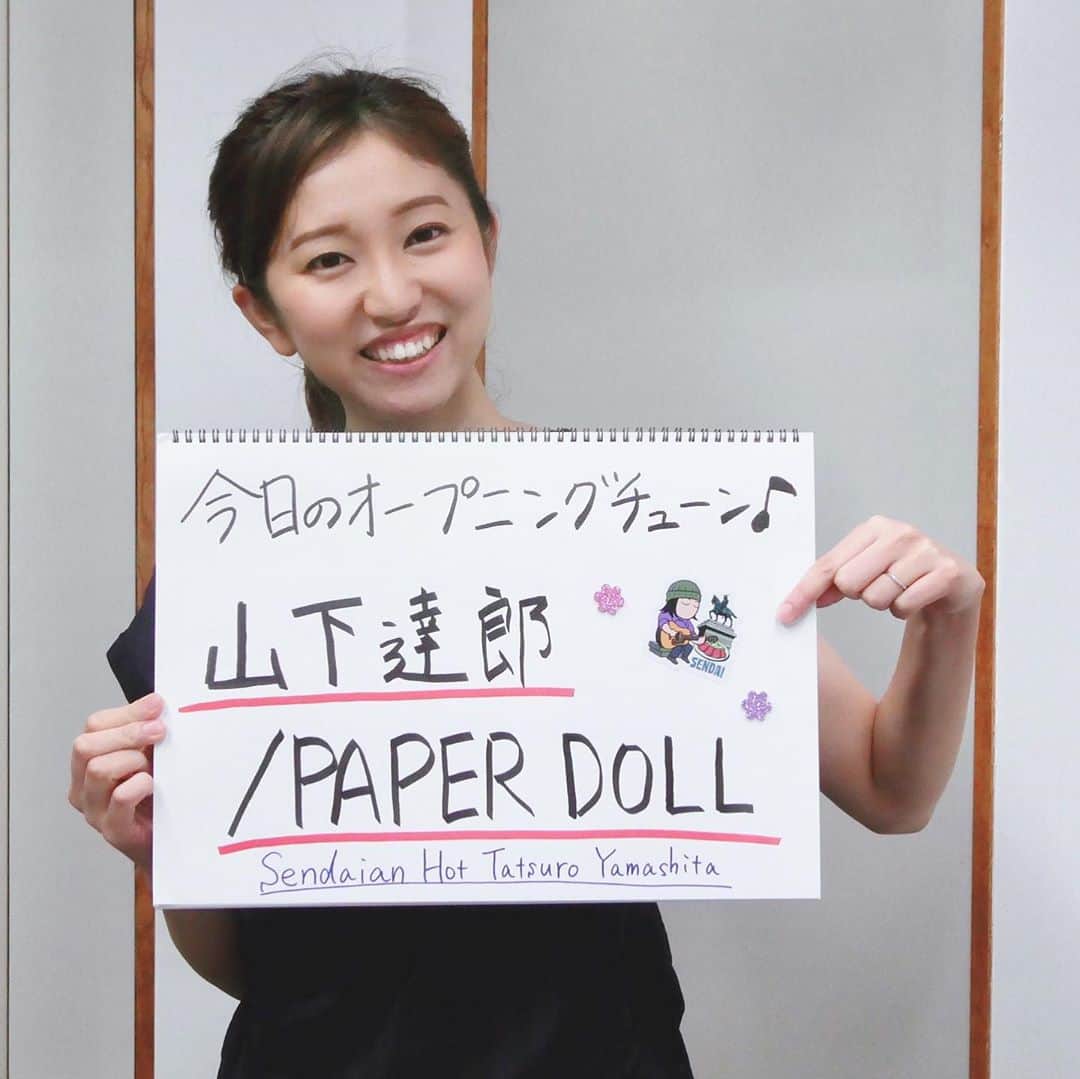 今日のオープニングチューン♪
山下達郎
SENDAI
/PAPER DOLL
Sendaian Hot Tatsuro Yamashita